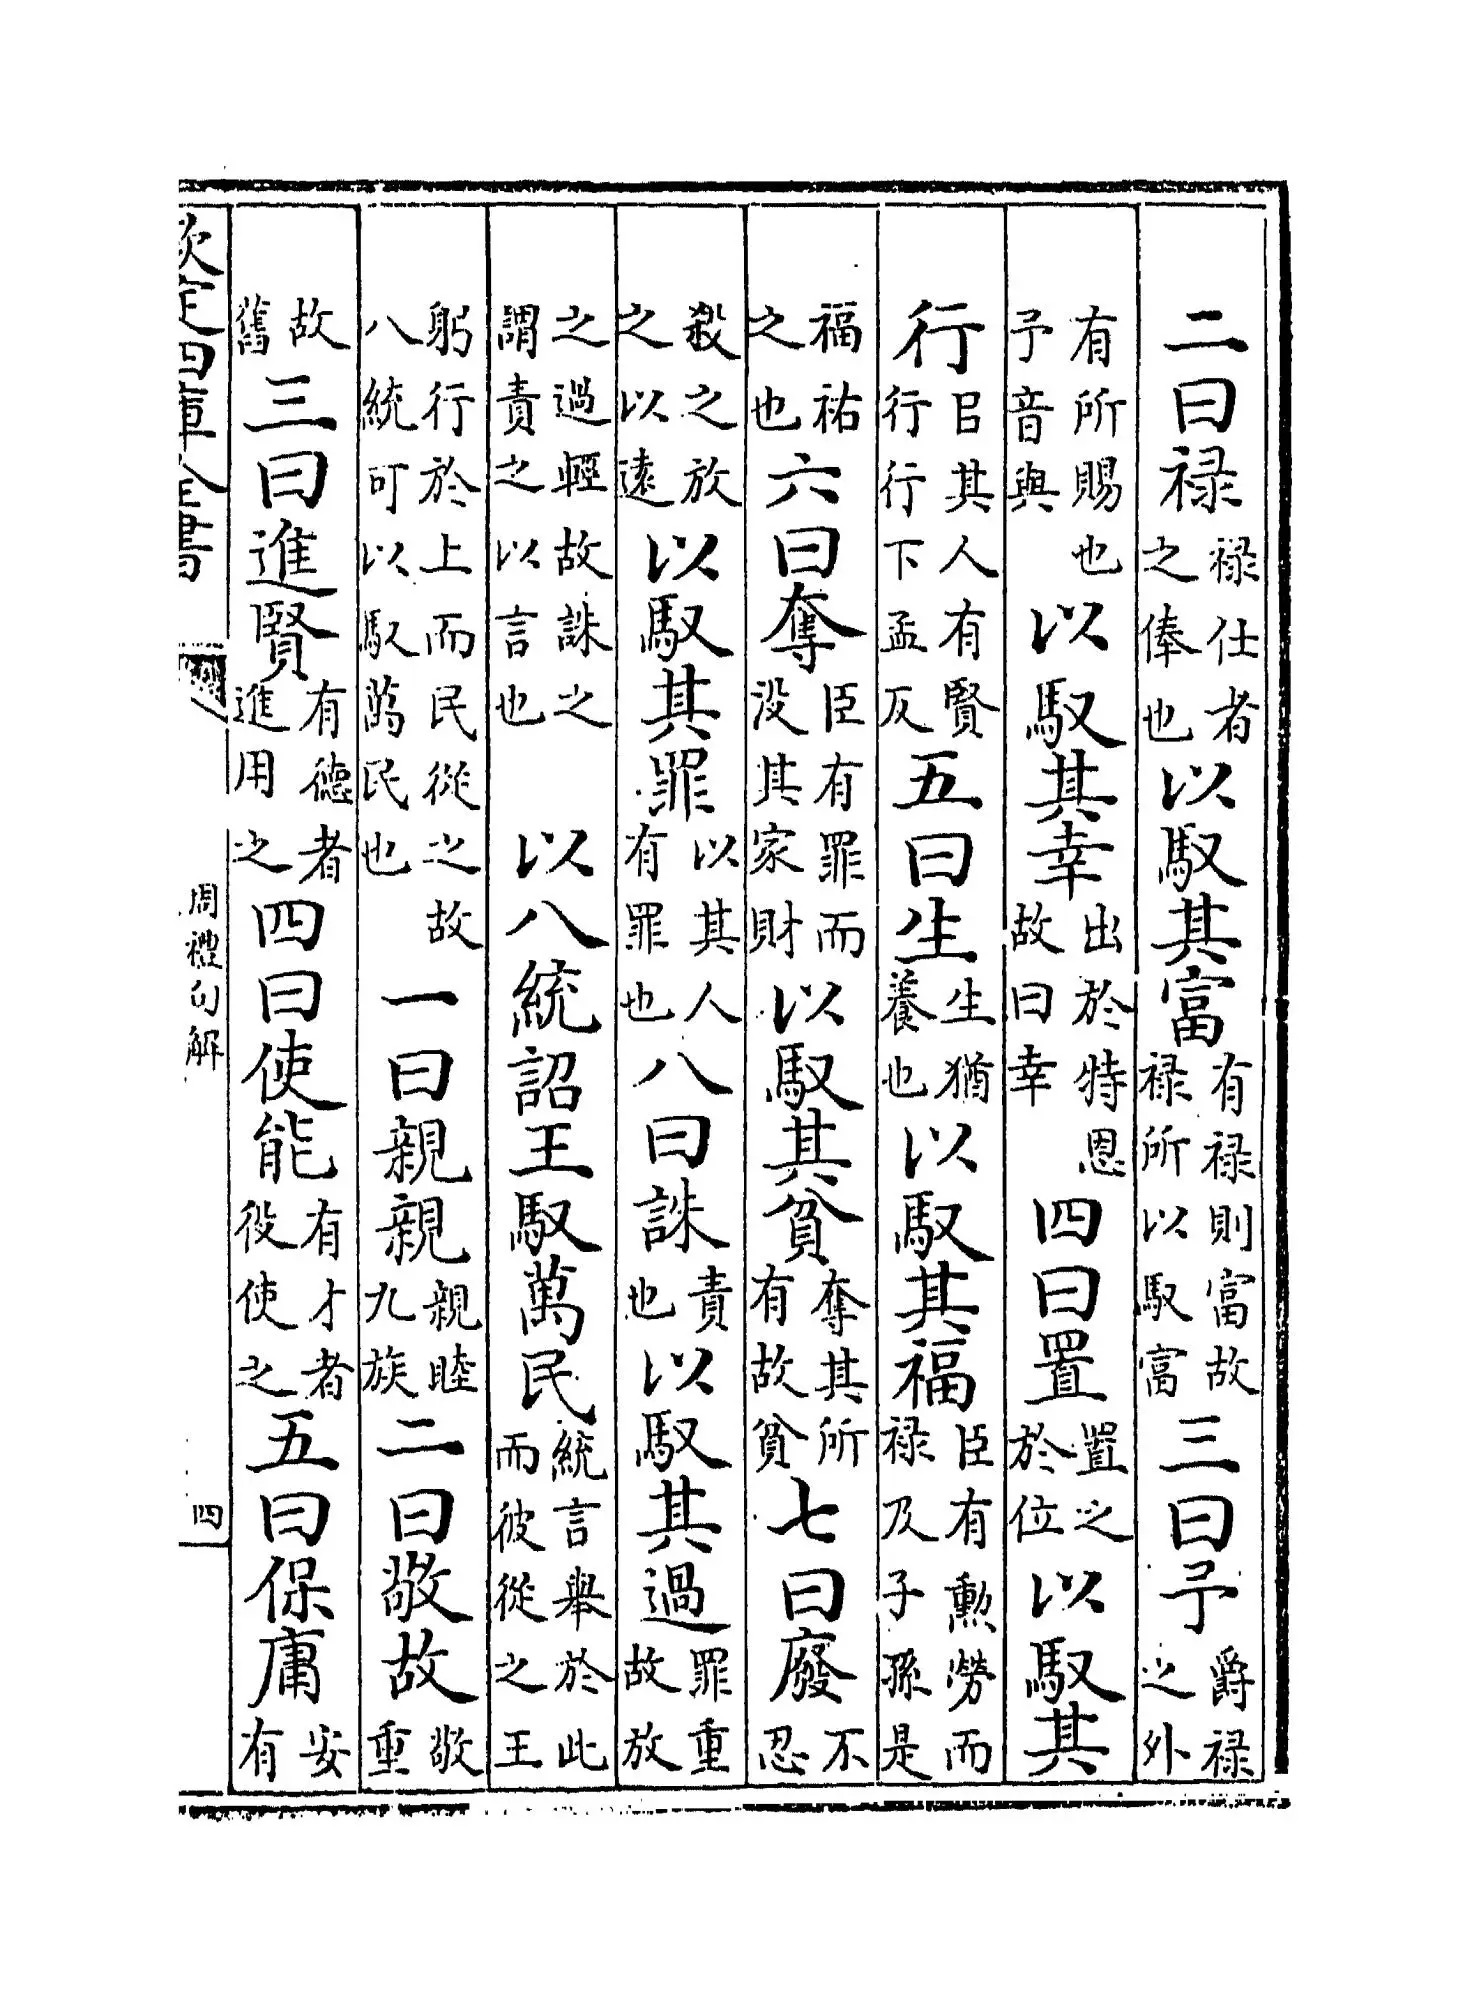 二曰禄禄仕者之俸也以馭其富有禄則富故禄所以馭富三曰予爵禄之外
有所賜也予音與以馭其幸出於特恩故曰幸四曰置置之於位以馭其
行㠯其人有賢行行下孟反五曰生生猶養也以馭其福臣有勲勞而禄及子孫是
福祐之也六曰奪臣有罪而没其家財以馭其貧奪其所有故貧七曰廢不忍
殺之放之以逺以馭其罪以其人有罪也八曰誅責也以馭其過罪重故放
之過輕故誅之謂責之以言也以八統詔王馭萬民統言舉於此而彼從之王
躬行於上而民從之故八統可以馭萬民也一曰親親親睦九族二曰敬故敬重
故舊三曰進賢有德者進用之四曰使能有才者役使之五曰保庸安有
欽定四庫全書
周禮句解
四